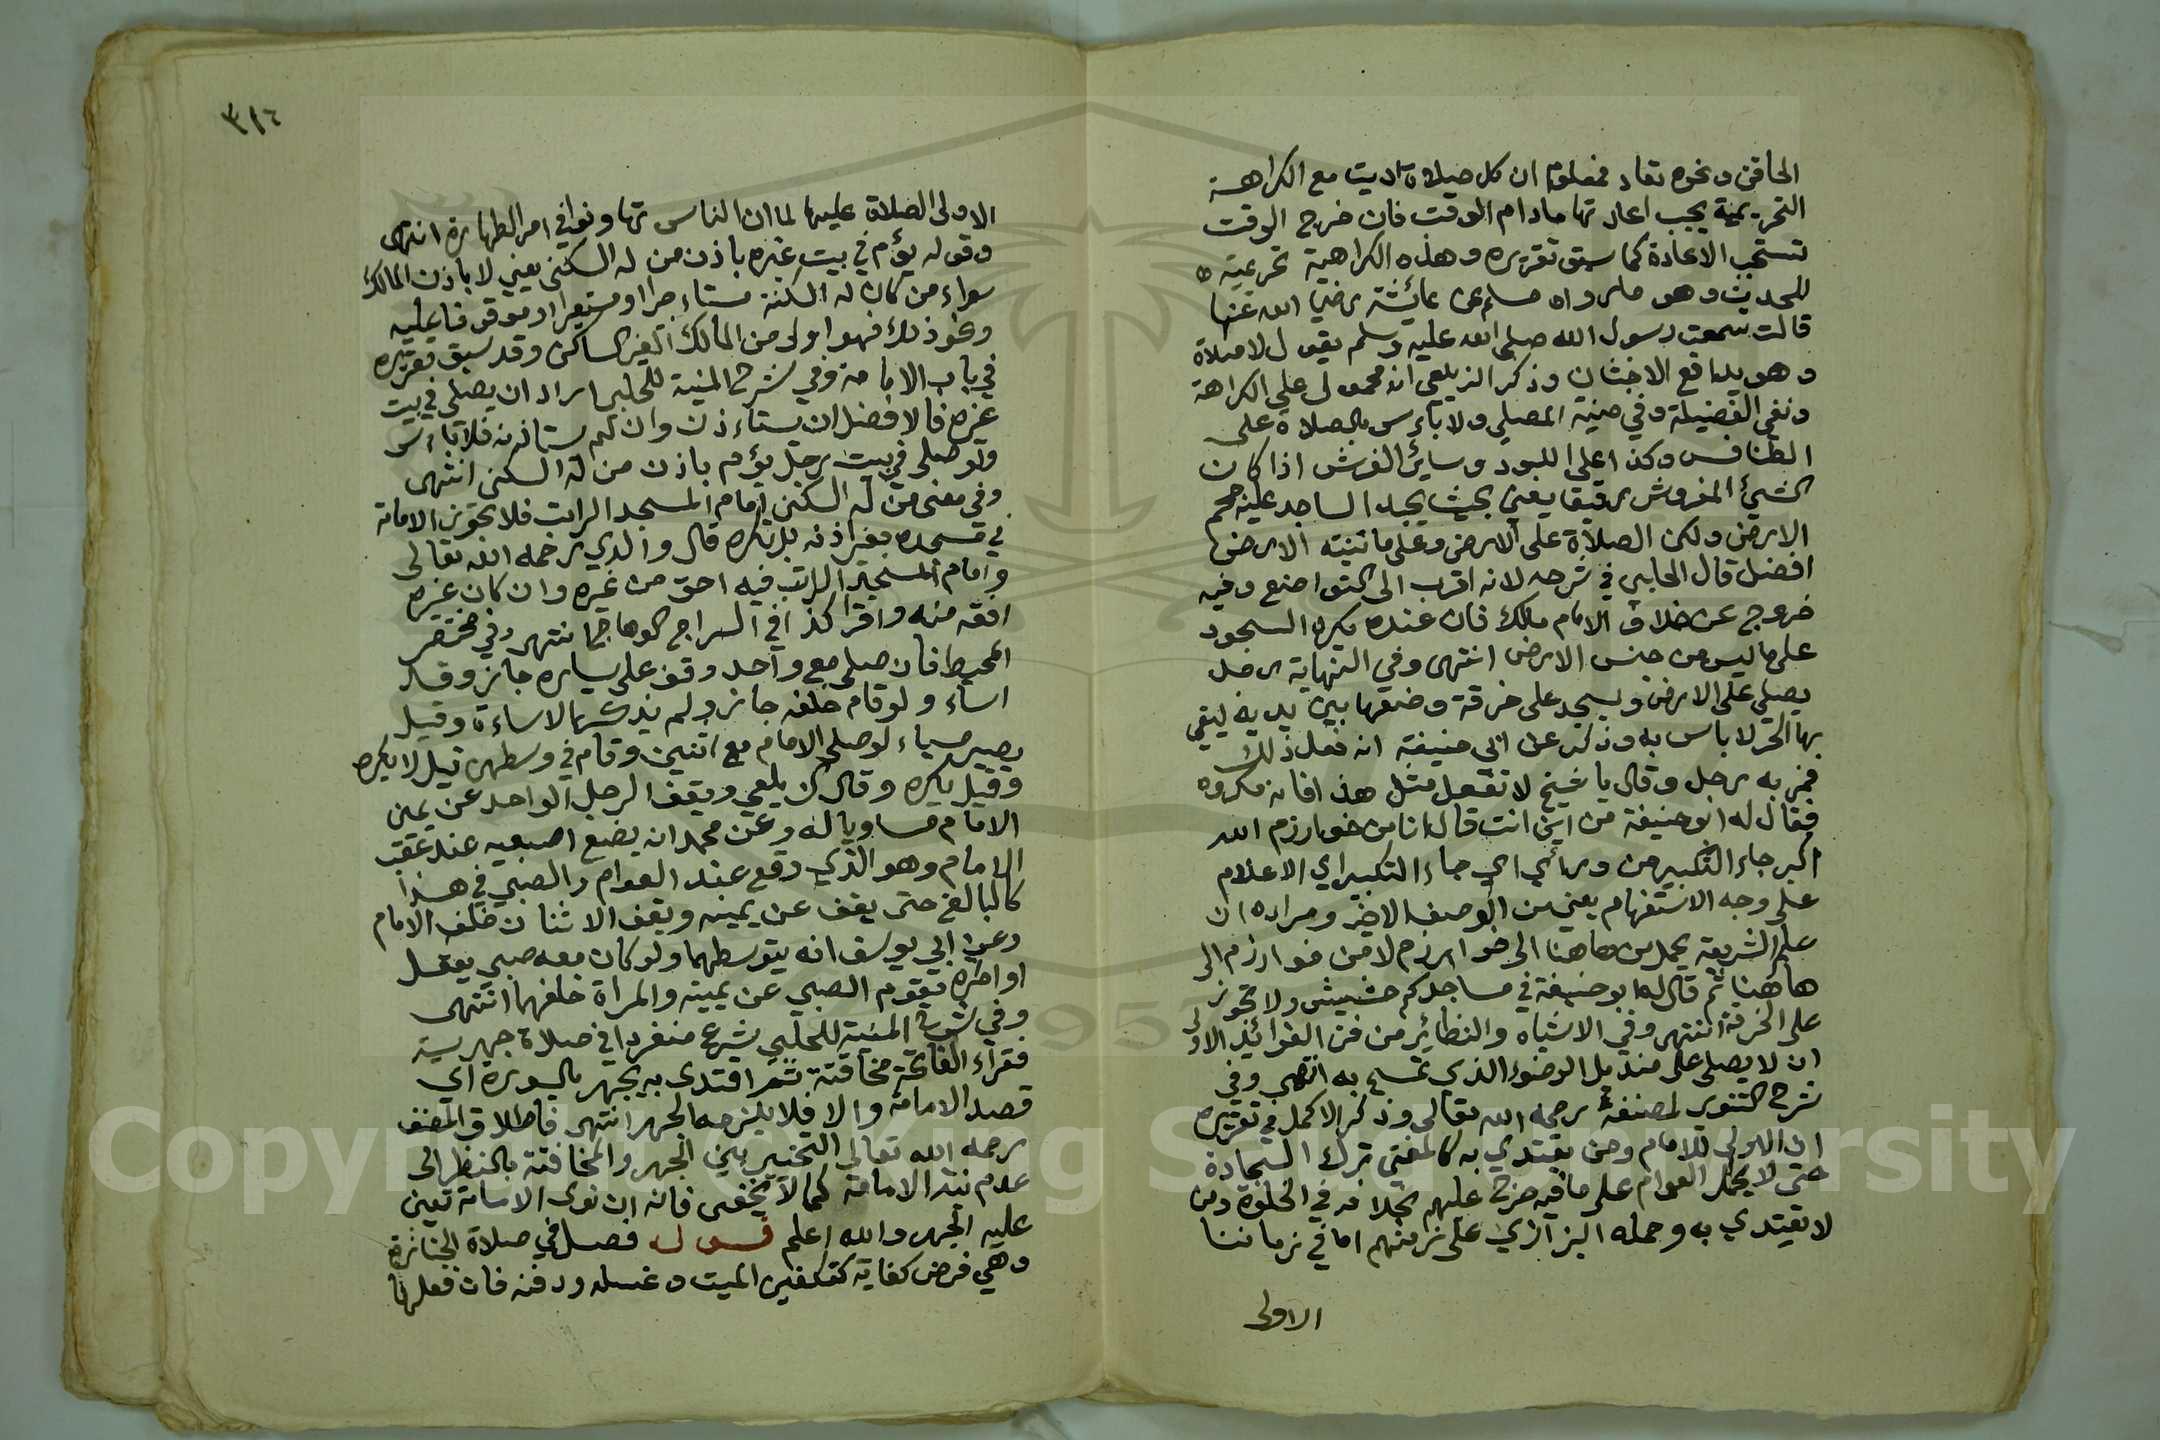 الحاقن ونحوه تعاد فمعلوم ان كل صلاة اديت مع الكراهة
التحريمية يجب اعادتها ما دام الوقت فان خرج الوقت
تستحب الاعادة كما سبق تقريره وهذه الكراهية تحريمية
للحديث وهو ما رواه مسلم عن عائشة رضي الله عنها
قالت سمعت رسول الله صلى الله عليه وسلم يقول لا صلاة
وهو يدافع الاخبثان وذكر الزيلعي انه محمول على الكراهة
ونفي الفضيلة وفي منية المصلي ولا بأس بالصلاة على
الطنافس وكذا على اللبود وساير الفرش اذا كان
الشيء المفروش رقيقا يعني بحيث يجد الساجد عليه حجم
الارض ولكن الصلاة على الارض وعلى ما تنبته الارض
افضل قال الحلبي في شرحه لانه اقرب الى التواضع وفيه
خروج عن خلاف الامام مالك فان عنده يكره السجود
على ما ليس من جنس الارض انتهى وفي النهاية رجل
يصلي على الارض ويسجد على خرقة وضعها بين يديه ليتقي
بها الحر لا باس به وذكر عن ابي حنيفة انه فعل ذلك
فمر به رجل وقال يا شيخ لا تفعل مثل هذا فانه مكروه
فقال له ابو حنيفة من اين انت قال انا من خوارزم الله
اكبر جاء التكبير من ورائي اي جاء التكبير اي الاعلام
على وجه الاستفهام يعني من الوصف الاخير ومراده ان
علم الشريعة يحمل من هاهنا الى خوارزم لا من خوارزم الى
هاهنا ثم قال له ابو حنيفة في مساجدكم حشيش ولا تجوز
على الخرقة انتهى وفي الاشباه والنظائر من فن الفوائد الاولى
ان لا يصلي على منديل الوضوء الذي تمسح به انتهى وفي
شرح التنوير لمصنفه رحمه الله تعالى وذكر الاكمل في تقريره
ان الاولى للامام ومن يقتدي به كالمفتي ترك السجادة
حتى لا يحمل العوام على ما فيه حرج عليهم بخلافه في الخلوة ومن
لا يقتدي به وحمله البزازي على زمنهم اما في زماننا
الاولى
٣١٤
الاولى الصلاة عليها لما ان الناس تهاونوا في امر الطهارة انتهى
وقوله يؤم في بيت غيره باذن من له السكنى يعني لا باذن المالك
سواء من كان له السكنة مستاجرا او مستعيرا او موقوفا عليه
ونحو ذلك فهو اولى من المالك الغير الساكن وقد سبق تقريره
في باب الامامة وفي شرح المنية للحلبي اراد ان يصلي في بيت
غيره فالافضل ان يستاءذن وان لم يستاذن فلا باءس
ولو صلى في بيت رجل يؤم باذن من له السكنى انتهى
وفي معنى من له السكنى امام المسجد الراتب فلا تجوز الامامة
في مسجده بغير اذنه بل يكره قال والدي رحمه الله تعالى
وامام المسجد الراتب فيه احق من غيره وان كان غيره
افقه منه واقرا كذا في السراج الوهاج انتهى وفي مختصر
المحيط فان صلى مع واحد وقف على يساره جاز وقد
اساء ولو قام خلفه جاز ولم يذكر الاساءة وقيل
يصير مسياء لو صلى الامام مع اثنين وقام في وسطهن قيل لا يكره
وقيل يكره وقال الزيلعي ويقف الرجل الواحد عن يمين
الامام مساويا له وعن محمد ان يضع اصبعيه عند عقب
الامام وهو الذي وقع عند العوام والصبي في هذا
كالبالغ حتى يقف عن يمينه ويقف الاثنان خلف الامام
وعن ابي يوسف انه يتوسطهما ولو كان معه صبي يعقل
او امراة يقوم الصبي عن يمينه والمراة خلفهما انتهى
وفي شرح المنية للحلبي شرع منفردا في صلاة جهرية
فقراء الفاتحة مخافتة ثم اقتدى به يجهر بالسورة اي
قصد الامامة والا فلا يلزمه الجهر انتهى فاطلاق المصنف
رحمه الله تعالى التخيير بين الجهر والمخافتة بالنظر الى
عدم نية الامامة كما لا يخفى فانه ان نوى الامامة تعين
عليه الجهر والله اعلم قوله فصل في صلاة الجنائزة
وهي فرض كفاية كتكفين الميت وغسله ودفنه فان فعلها